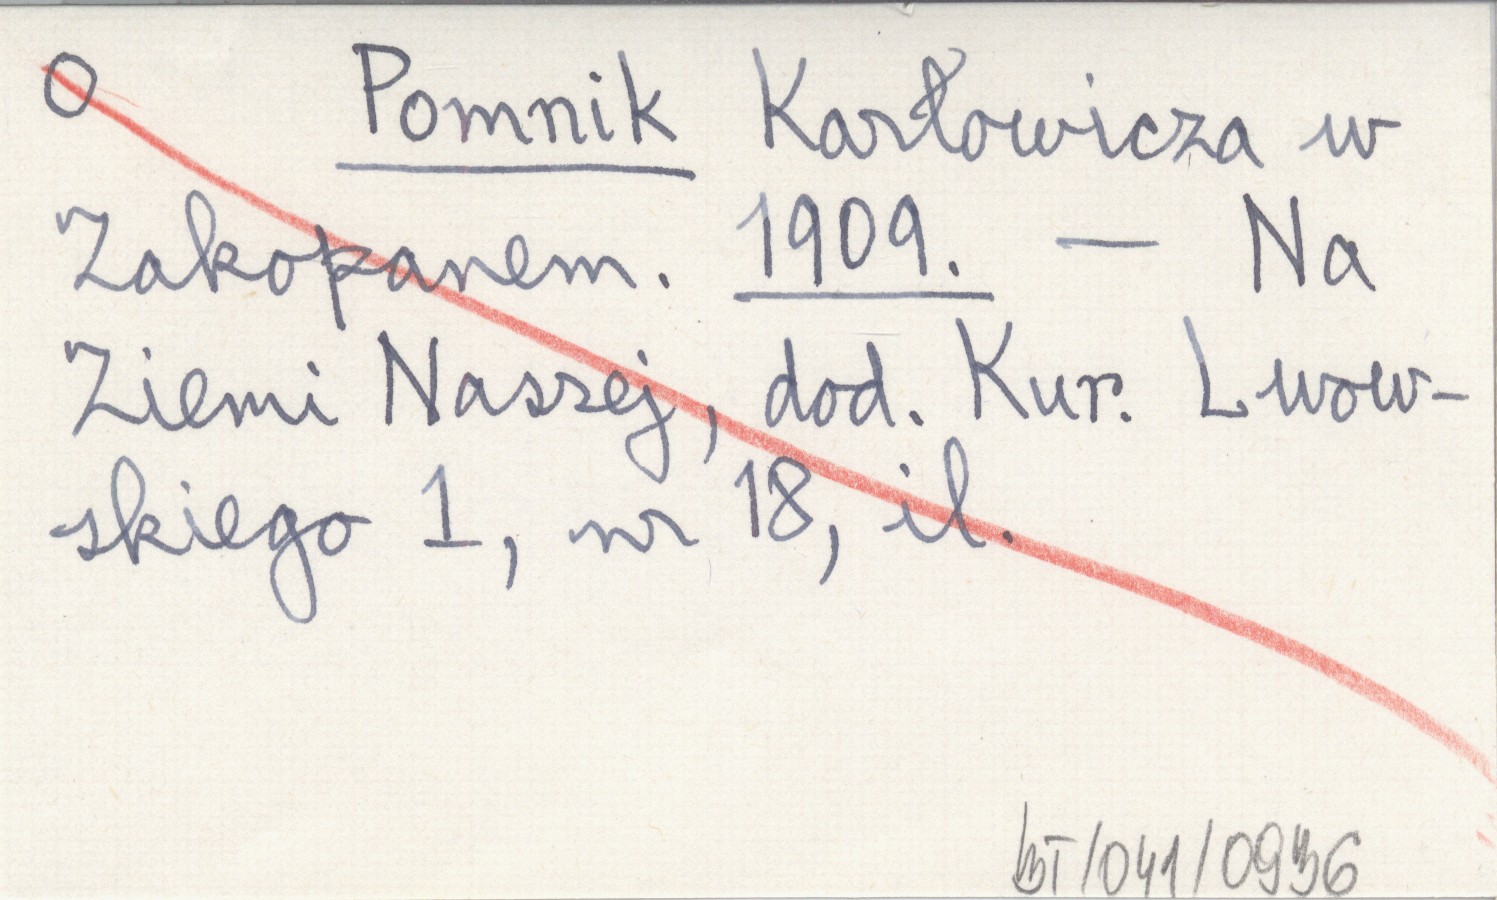 O Pomnik Karłowicza w
Zakopanem. 1909. — Na
Ziemi Naszej, dod. Kur. Lwow-
skiego 1, nr 18, il.
BT/041/0936